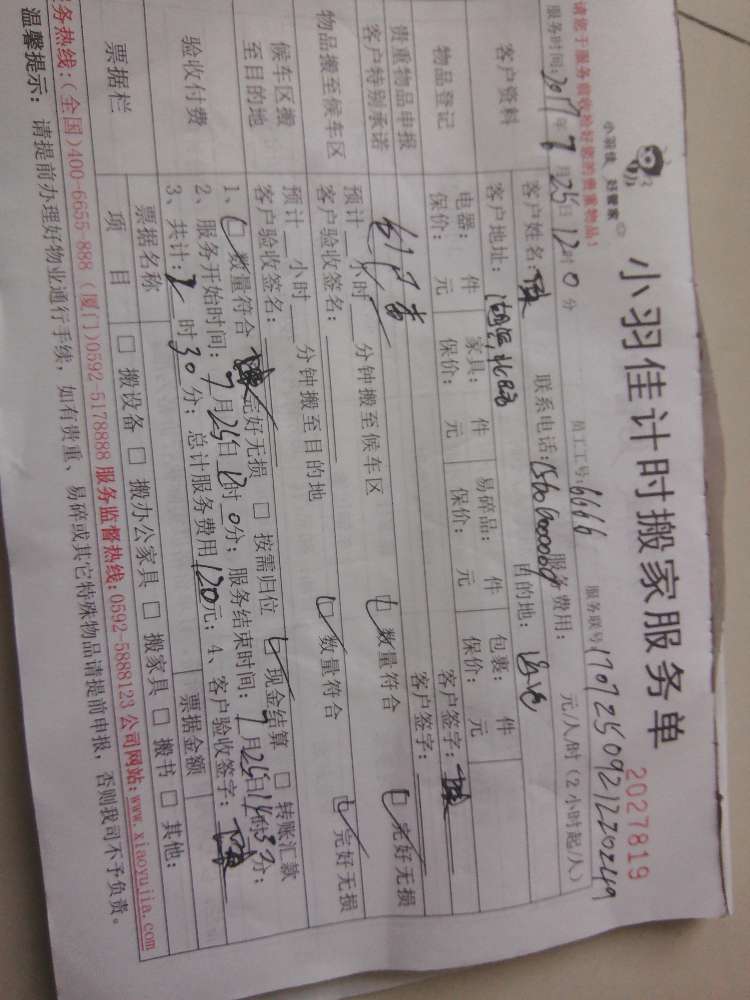 小羽佳计时搬家服务单
2027819
小羽佳 好管家
请您于服务前收拾好您的贵重物品!
员工工号: 6666 服务联号 1707250921220249
服务时间: 2017年7月25日12时0分
客户资料 客户姓名: 联系电话: 服务费用: 元/人/时(2小时起/人)
客户地址: 目的地:
物品登记 电器: 件 家具: 件 易碎品: 件 包裹: 件 客户签字:
保价: 元 保价: 元 保价: 元 保价: 元
贵重物品申报 客户签字:
客户特别承诺
物品搬至候车区 预计 小时 分钟搬至候车区 数量符合 完好无损
客户验收签名:
候车区搬至目的地 预计 小时 分钟搬至目的地 数量符合 完好无损
客户验收签名:
验收付费 1、 数量符合 完好无损 按需归位 现金结算 转账汇款
2、服务开始时间: 7月25日12时0分; 服务结束时间: 7月25日14时3分;
3、共计: 2时30分; 总计服务费用120元; 4、客户验收签字:
票据栏 票据名称 票据金额
项目 搬设备 搬办公家具 搬家具 搬书 其他:
务热线:(全国)400-6655-888 (厦门)0592-5178888 服务监督热线:0592-5888123 公司网站:www.xiaoyujia.com
温馨提示: 请提前办理好物业通行手续, 如有贵重、易碎或其它特殊物品请提前申报, 否则我司不予负责。